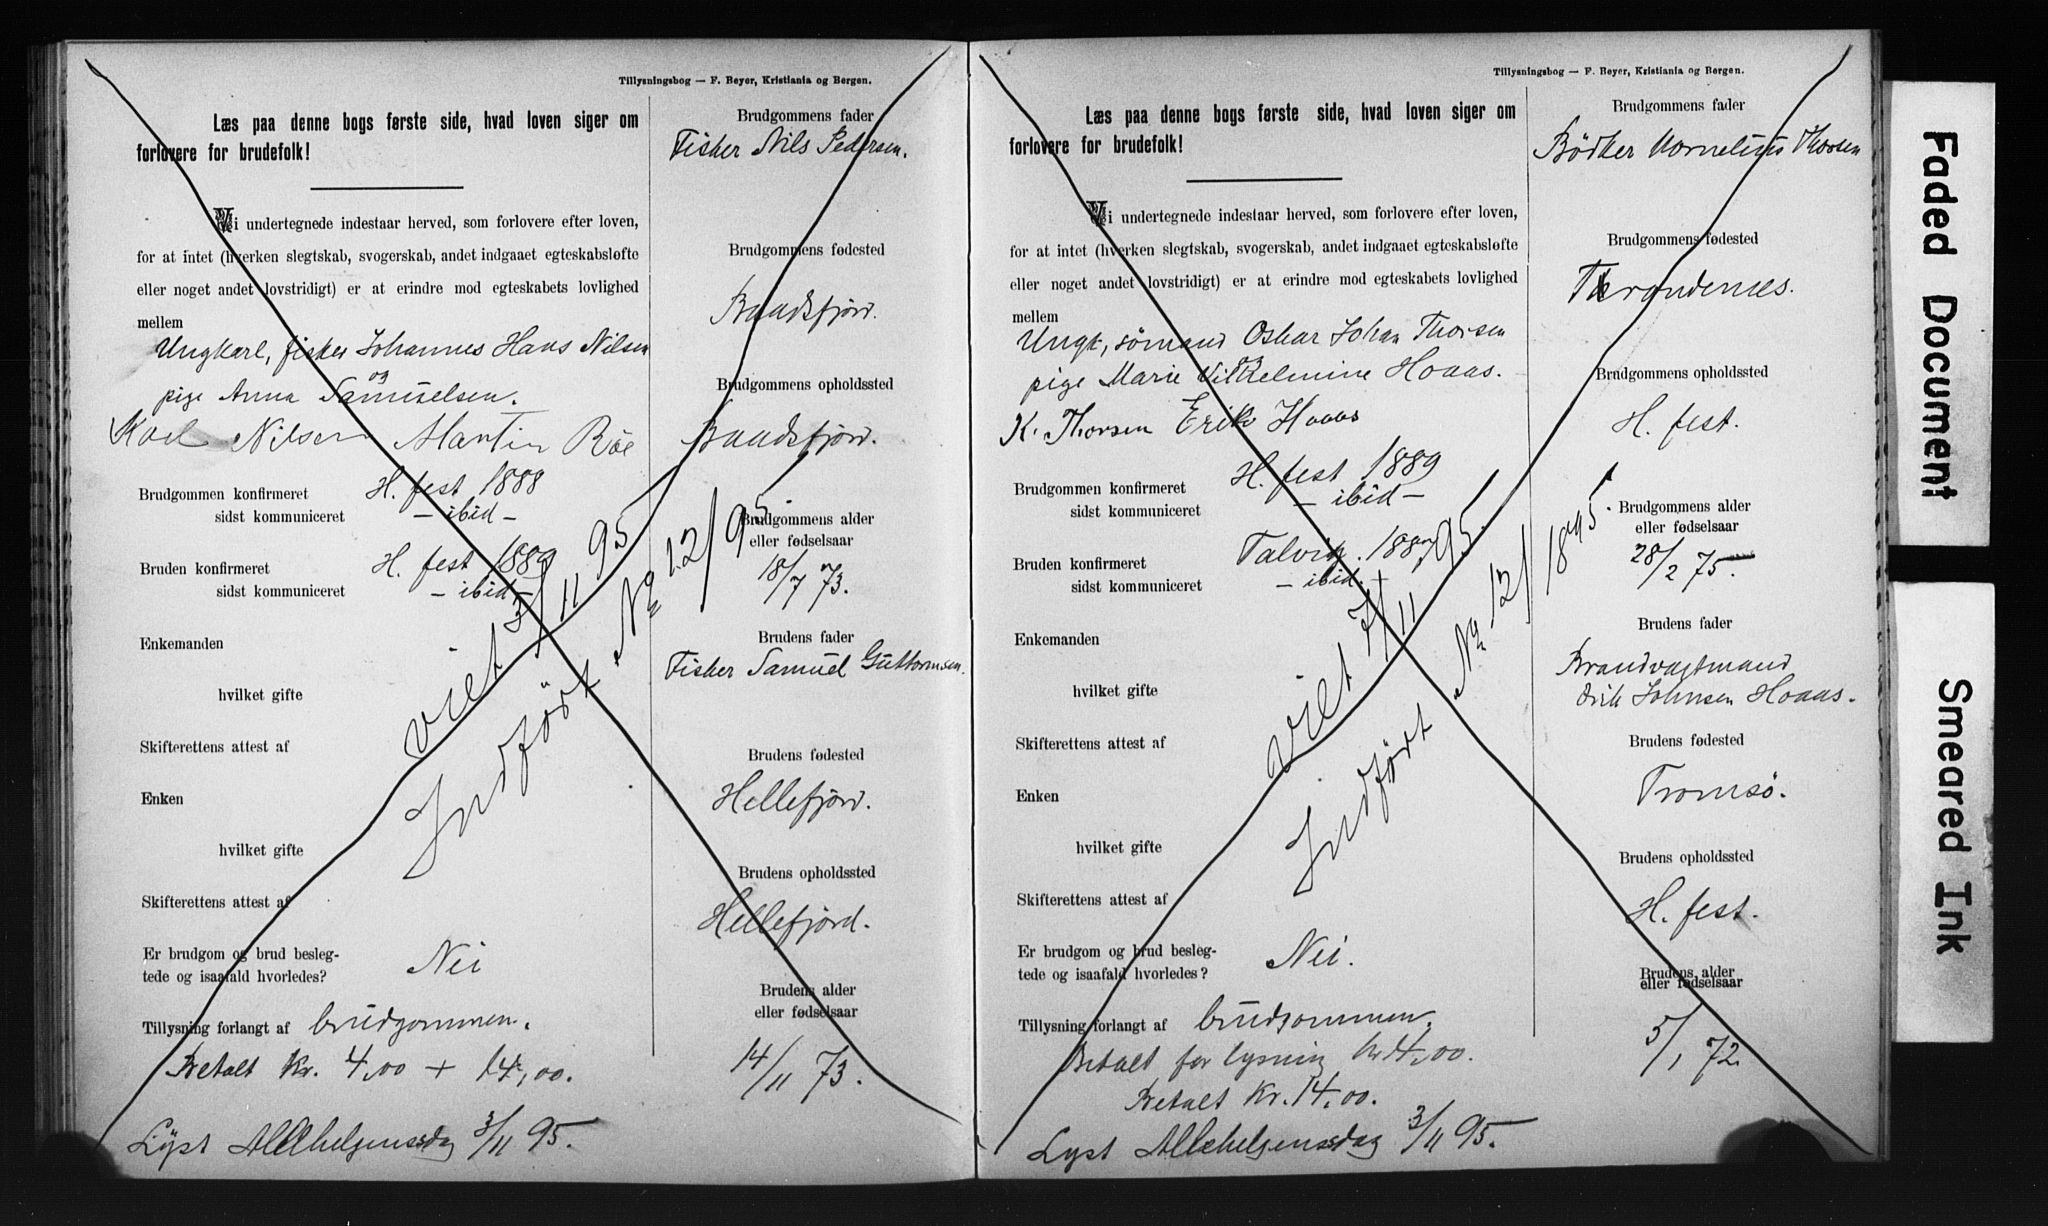 Tillysningsbog — F. Beyer, Kristiania og Bergen.
Læs paa denne bogs første side, hvad loven siger om
forlovere for brudefolk!
Vi undertegnede indestaar herved, som forlovere efter loven,
for at intet (hverken slegtskab, svogerskab, andet indgaaet egteskabsløfte
eller noget andet lovstridigt) er at erindre mod egteskabets lovlighed
mellem
Ungkarl, fisker Johannes Hans Nilsen
og
pige Anna Samuelsen.
Karl Nilsen Martin Röe
Brudgommen konfirmeret H. fest 1888
sidst kommuniceret — ibid —
Bruden konfirmeret H. fest 1889
sidst kommuniceret — ibid —
Enkemanden
hvilket gifte
Skifterettens attest af
Enken
hvilket gifte
Skifterettens attest af
Er brudgom og brud beslegtede og isaafald hvorledes? Nei
Tillysning forlangt af brudgommen.
Betalt kr. 4,00 + 14,00.
Lyst Allehelgensdag 3/11 95.
viet 3/11 95
Indført No 12/95.
Brudgommens fader
Fisker Nils Pedersen.
Brudgommens fødested
Baadsfjord.
Brudgommens opholdssted
Baadsfjord.
Brudgommens alder
eller fødselsaar
18/7 73.
Brudens fader
Fisker Samuel Guttormsen.
Brudens fødested
Hellefjord.
Brudens opholdssted
Hellefjord.
Brudens alder
eller fødselsaar
14/11 73.
Tillysningsbog — F. Beyer, Kristiania og Bergen.
Læs paa denne bogs første side, hvad loven siger om
forlovere for brudefolk!
Vi undertegnede indestaar herved, som forlovere efter loven,
for at intet (hverken slegtskab, svogerskab, andet indgaaet egteskabsløfte
eller noget andet lovstridigt) er at erindre mod egteskabets lovlighed
mellem
Ungk, sömand Oskar Johan Thorsen
og
pige Marie Vilhelmine Hoaas.
K. Thorsen Erik Hoaas
Brudgommen konfirmeret H. fest 1889
sidst kommuniceret — ibid —
Bruden konfirmeret Talvig.
sidst kommuniceret — ibid. —
Enkemanden
hvilket gifte
Skifterettens attest af
Enken
hvilket gifte
Skifterettens attest af
Er brudgom og brud beslegtede og isaafald hvorledes? Nei.
Tillysning forlangt af brudgommen.
Betalt for lysning kr 4,00.
Betalt kr. 14,00.
Lyst Allehelgensdag 3/11 95.
viet 7/11 95.
Indført No 12/1895.
Brudgommens fader
Bödker Kornelius Thorsen
Brudgommens fødested
Throndenes.
Brudgommens opholdssted
H. fest.
Brudgommens alder
eller fødselsaar
28/2 75.
Brudens fader
Brandvagtmand
Erik Johnsen Hoaas.
Brudens fødested
Tromsö.
Brudens opholdssted
H. fest.
Brudens alder
eller fødselsaar
5/1 72.
Faded Document
Smeared Ink